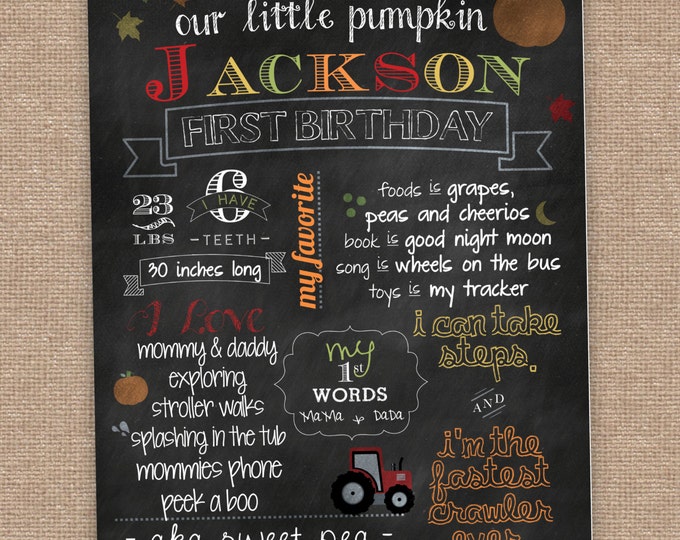 our little pumpkin
JACKSON
FIRST BIRTHDAY
23
LBS
6
I HAVE
- TEETH -
30 inches long
my favorite
foods is grapes,
peas and cheerios
book is good night moon
song is wheels on the bus
toys is my tracker
I Love
mommy & daddy
exploring
stroller walks
splashing in the tub
mommies phone
peek a boo
my
1st
WORDS
MaMa & DaDa
i can take
steps.
AND
i'm the
fastest
crawler
ever
- aka sweet pea -